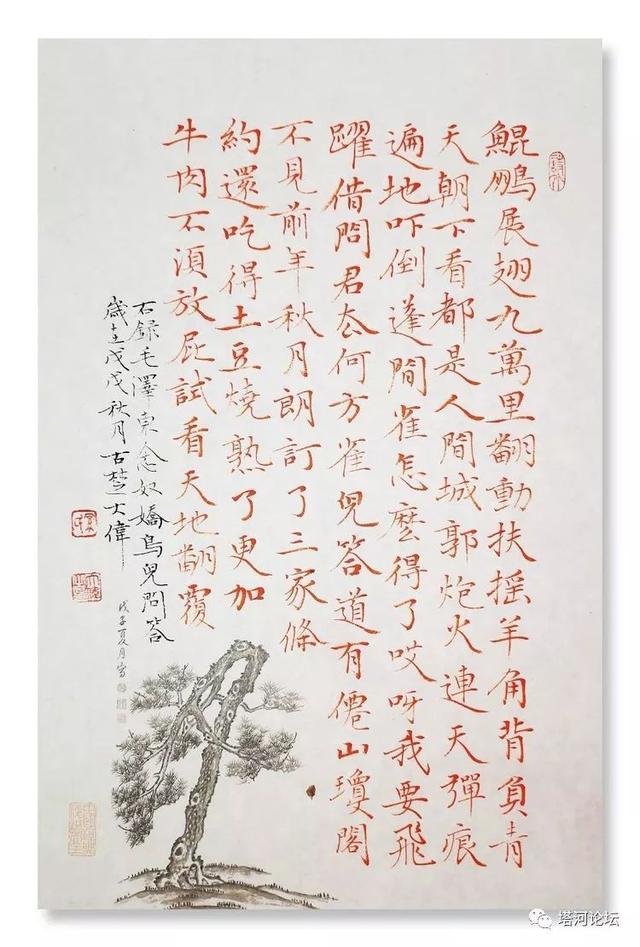 鯤鵬展翅九萬里翻動扶摇羊角背負青
天朝下看都是人間城郭炮火連天彈痕
遍地吓倒蓬間雀怎麽得了哎呀我要飛
躍借問君去何方雀兒答道有僊山瓊閣
不見前年秋月朗訂了三家條
約還吃得土豆燒熟了更加
牛肉不須放屁試看天地翻覆
右録毛澤東念奴嬌鳥兒問答
歲在戊戌秋月古楚大偉
戊子夏月寫
塔河论坛